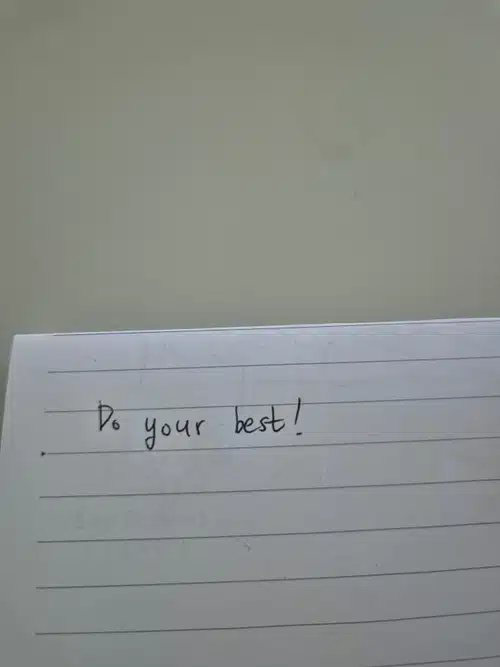 Do your best!